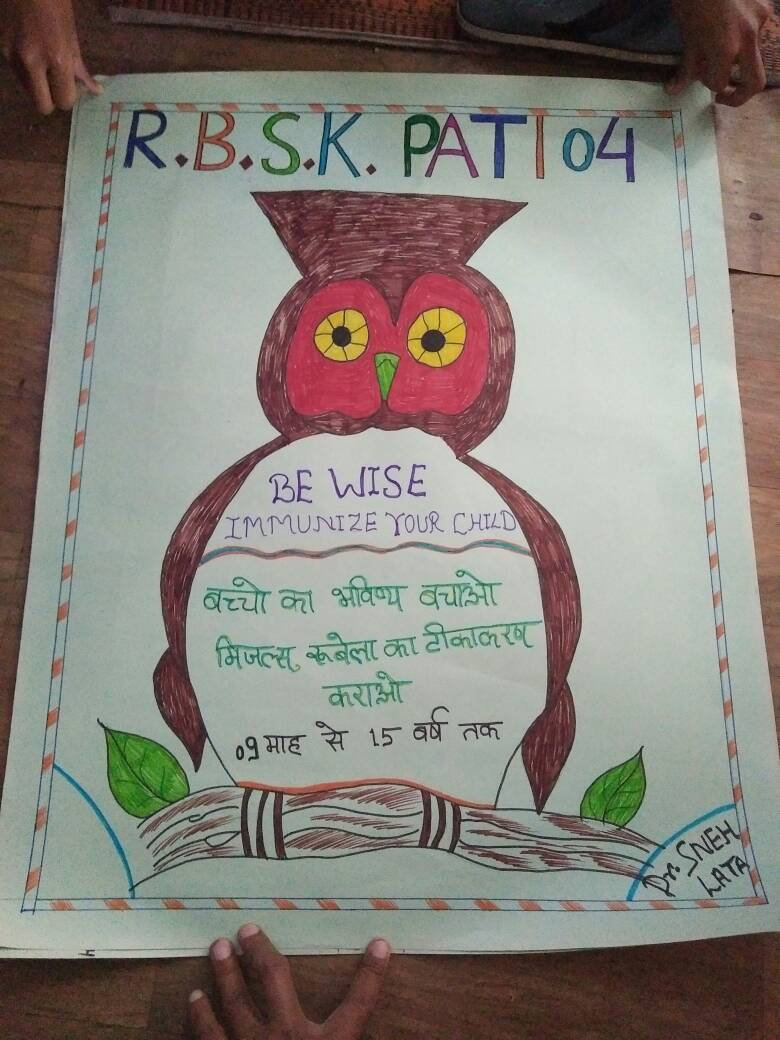 R.B.S.K. PATI 04
BE WISE
IMMUNIZE YOUR CHILD
बच्चो का भविष्य बचाओ
मिजल्स, रूबेला का टीकाकरण
कराओ
09 माह से 15 वर्ष तक
Dr. SNEH
LATA